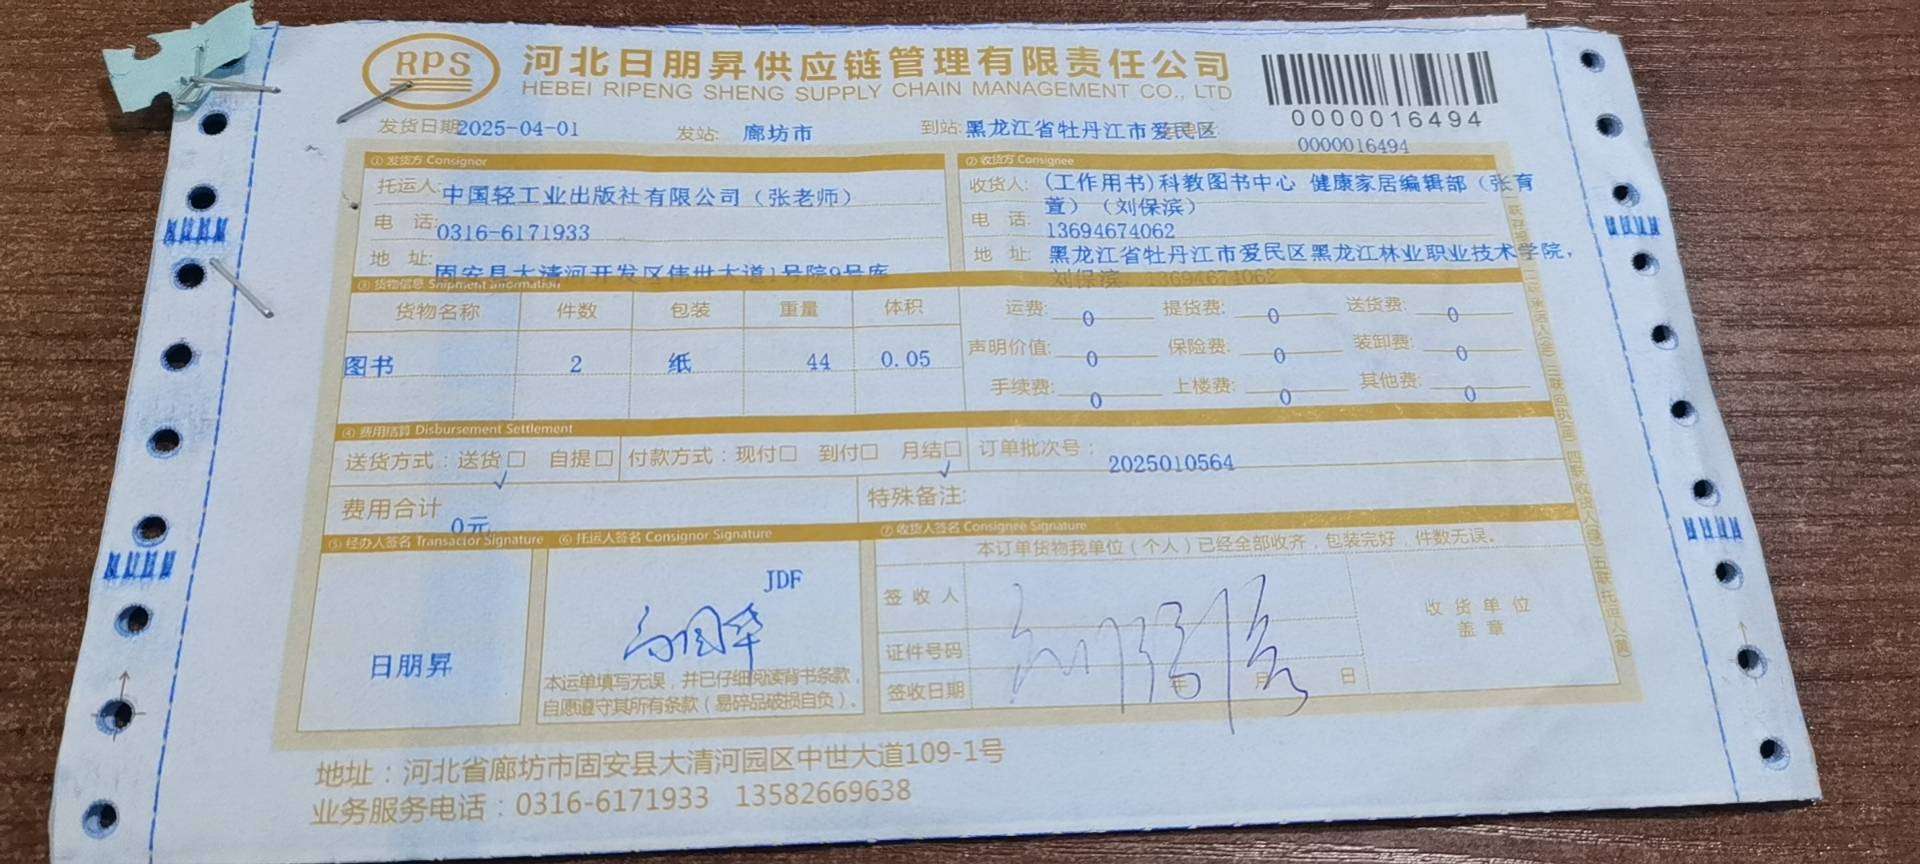 RPS
河北日朋昇供应链管理有限责任公司
HEBEI RIPENG SHENG SUPPLY CHAIN MANAGEMENT CO., LTD
0000016494
发货日期 2025-04-01 发站: 廊坊市 到站: 黑龙江省牡丹江市爱民区 0000016494
① 发货方 Consignor
托运人: 中国轻工业出版社有限公司（张老师）
电 话: 0316-6171933
地 址: 固安县大清河开发区伟世大道1号院9号库
② 收货方 Consignee
收货人: (工作用书)科教图书中心 健康家居编辑部（张育
萱）（刘保滨）
电 话: 13694674062
地 址: 黑龙江省牡丹江市爱民区黑龙江林业职业技术学院，
刘保滨 13694674062
③ 货物信息 Shipment Information
货物名称 件数 包装 重量 体积
图书 2 纸 44 0.05
运费: 0 提货费: 0 送货费: 0
声明价值: 0 保险费: 0 装卸费: 0
手续费: 0 上楼费: 0 其他费: 0
④ 费用结算 Disbursement Settlement
送货方式：送货□ √ 自提□ 付款方式：现付□ 到付□ 月结□ √ 订单批次号： 2025010564
费用合计 0元 特殊备注:
⑤ 经办人签名 Transactor Signature
日朋昇
⑥ 托运人签名 Consignor Signature
JDF
本运单填写无误，并已仔细阅读背书条款，
自愿遵守其所有条款（易碎品破损自负）。
⑦ 收货人签名 Consignee Signature
本订单货物我单位（个人）已经全部收齐，包装完好，件数无误。
签 收 人
证件号码
签收日期 年 月 日
收 货 单 位
盖 章
地址：河北省廊坊市固安县大清河园区中世大道109-1号
业务服务电话：0316-6171933 13582669638